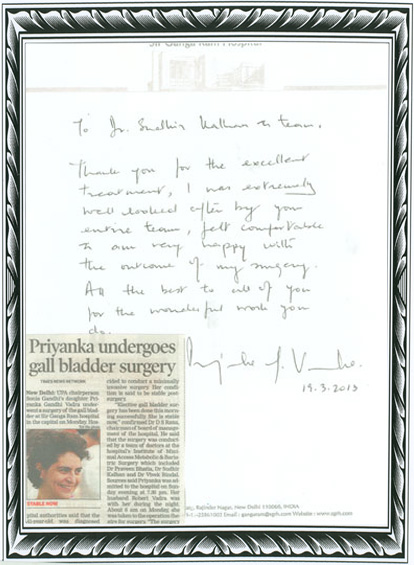 Sir Ganga Ram Hospital
To Dr. Sudhir Kalhan & team.
Thank you for the excellent
treatment, I was extremely
well looked after by your
entire team, felt comfortable
& am very happy with
the outcome of my surgery.
All the best to all of you
for the wonderful work you
do.
19.3.2013
Priyanka undergoes
gall bladder surgery
TIMES NEWS NETWORK
New Delhi: UPA chairperson
Sonia Gandhi's daughter Pri-
yanka Gandhi Vadra under-
went a surgery of the gall blad-
der at Sir Ganga Ram hospital
in the capital on Monday.
STABLE NOW
pital authorities said that the
was diagnosed
cided to conduct a minimally
invasive surgery. Her condi-
tion is said to be stable post-
surgery.
"Elective gall bladder sur-
gery has been done this morn-
ing successfully. She is stable
now," confirmed Dr D S Rana,
chairman of board of manage-
ment of the hospital. He said
that the surgery was conduct-
ed by a team of doctors at the
hospital's Institute of Mini-
mal Access Metabolic & Baria-
tric Surgery which included
Dr Parveen Bhatia, Dr Sudhir
Kalhan and Dr Vivek Bindal.
Sources said Priyanka was ad-
mitted to the hospital on Sun-
day evening at 7.30 pm. Her
husband Robert Vadra was
with her during the night.
About 8 am on Monday, she
was taken to the operation the-
atre for surgery. "The surgery
Rajinder Nagar, New Delhi 110060, INDIA
Email : gangaram@sgrh.com Website : www.sgrh.com